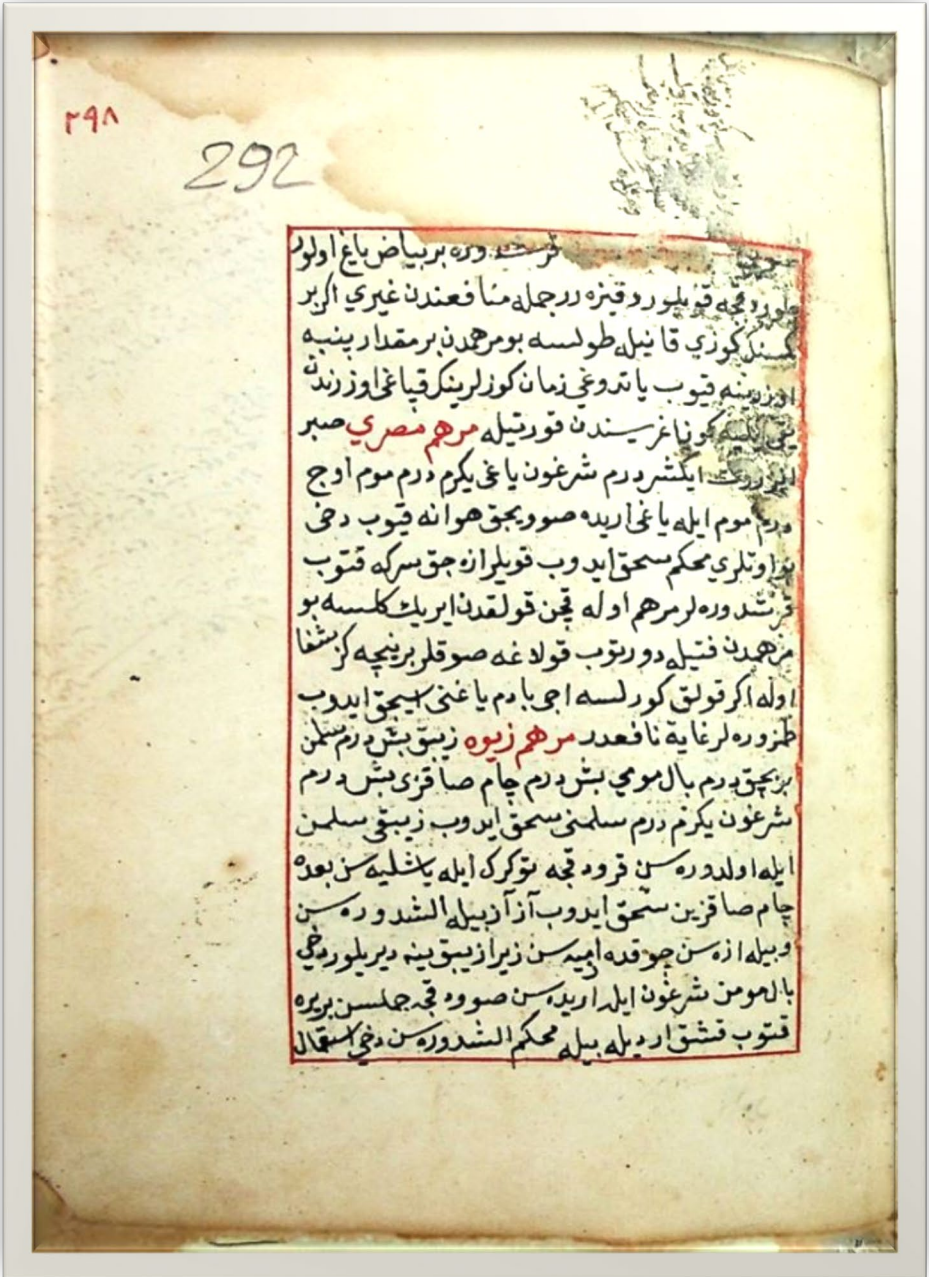 ٢٩٨
292
قرشدوره بر بياض ياغ اولور
قويلور و قيزه رر جمله منافعندن غيري اكر بر
كمسنك كوزي قانيله طولسه بو مرهمدن بر مقدار ينبه
اوزرينه قيوب ياتدوغي زمان كوزلرينك قپاغي اوزرندن
كوز اغريسندن قورتيله مرهم مصري صبر
ايكشر درم شرغون ياغي يكرم درم موم اوچ
درم موم ايله ياغي اريده صوويجق هوانه قيوب دخي
بو اوتلري محكم سحق ايدوب قويلر ازه جق سركه قتوب
قرشدوره لر مرهم اوله قچن قولقدن ايريك كلسه بو
مرهمدن فتيله دورتوب قولاغه صوقلر بر نيچه كز شفا
اوله اكر قولق كورلسه اجي بادم ياغني اسيجق ايدوب
طمزوره لر غاية نافعدر مرهم زيوه زيبق بش درم سلمن
بر بچق درم بال مومي بش درم چام صاقزى بش درم
شرغون يكرم درم سلمني سحق ايدوب زيبقي سلمن
ايله اولدوره سن قرودقجه توكرك ايله ياشليه سن بعده
چام صاقزين سحق ايدوب آز آز بيله الشدوره سن
وبيله ازه سن چوقده اميه سن زيرا زيبق ينه ديريلور دخي
بال مومن شرغون ايله اريده سن صوودقجه جملسن بريره
قتوب قشق ارديله بيله محكم الشدوره سن دخي استعمال